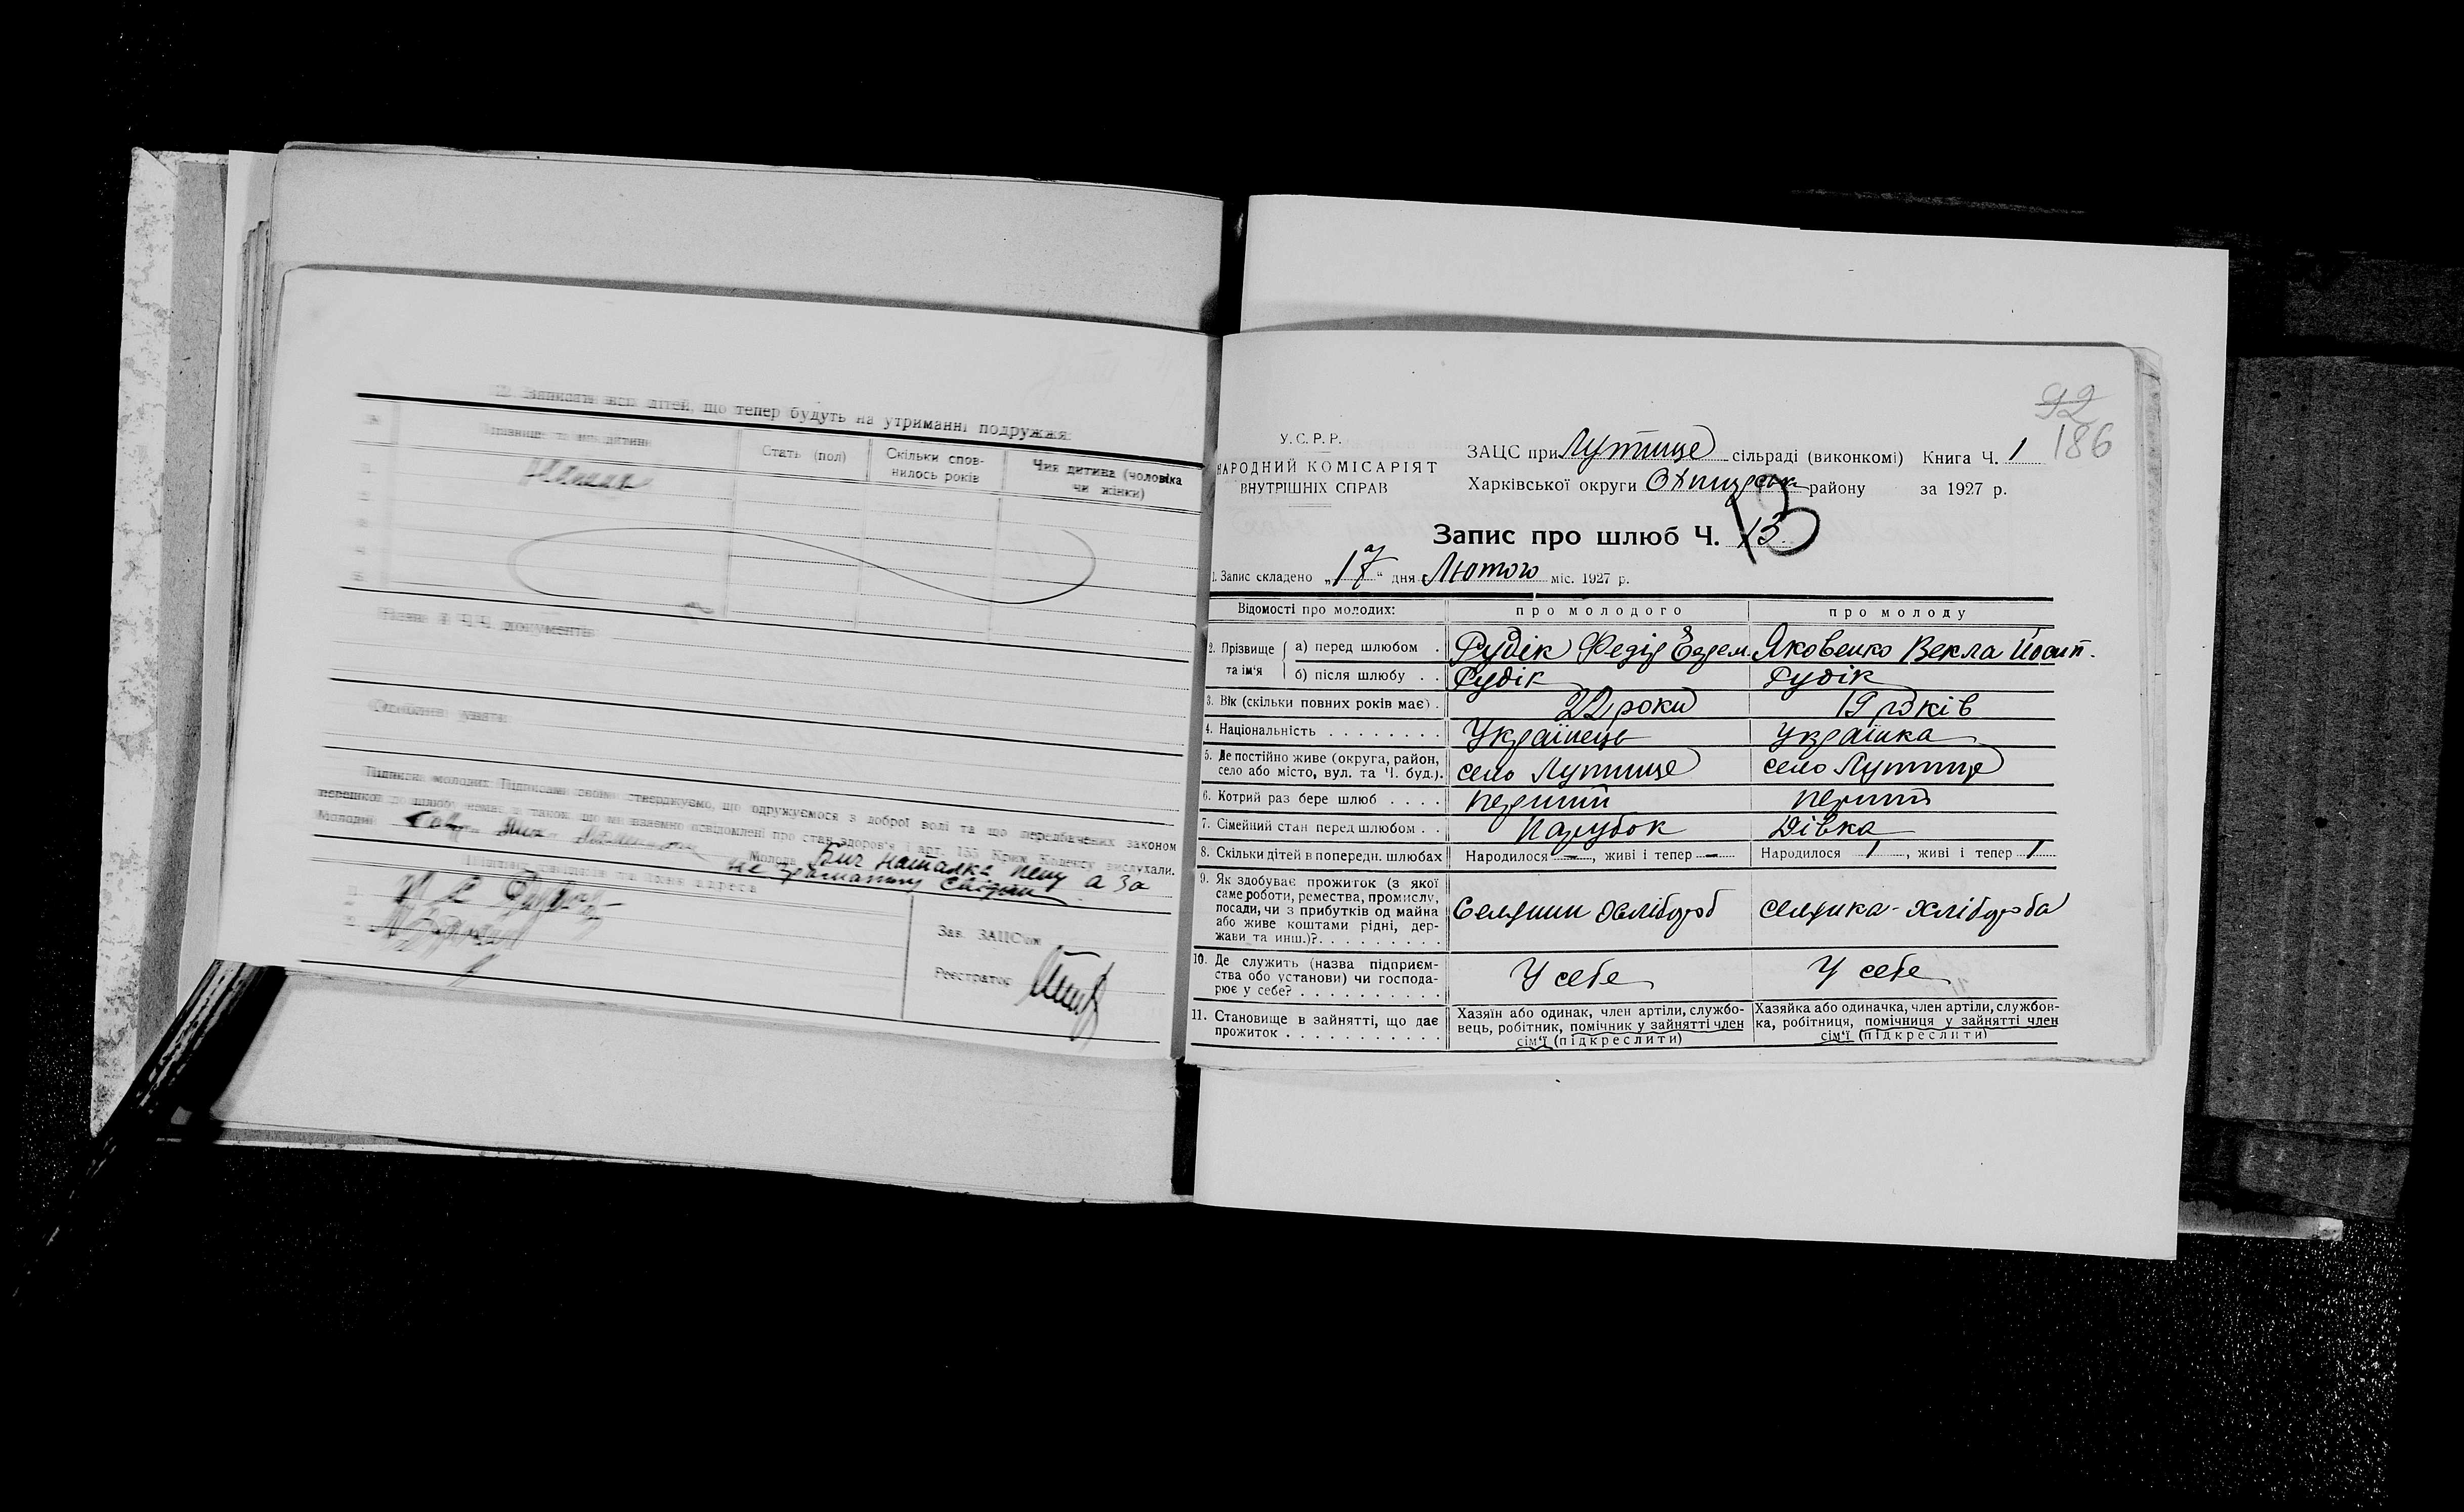 12. Записати всіх дітей, що тепер будуть на утриманні подружжя:
Прізвище та ім'я дитини
Стать (пол)
Скільки спов-
нилось років
Чия дитина (чоловіка
чи жінки)
Назва й Ч.Ч. документів
Особливі уваги
Підписка молодих: Підписами своїми стверджуємо, що одружуємося з доброї волі та що передбачених законом
перешкод до шлюбу немає, а також що ми взаємно освідомлені про стан здоров'я і арт. 155 Крим. Кодексу вислухали.
Молодий
Молода Бич Наталка а за
не грамотну
Підписи свідків та їхня адреса
Зав. ЗАЦС'ом
Реєстратор
92
186
У.С.Р.Р.
НАРОДНИЙ КОМІСАРІЯТ
ВНУТРІШНІХ СПРАВ
ЗАЦС при Лутище сільраді (виконкомі) Книга Ч. 1
Харківської округи району за 1927 р.
Запис про шлюб Ч. 13
13
1. Запис складено „17“ дня Лютого міс. 1927 р.
Відомості про молодих: про молодого про молоду
2. Прізвище та ім'я а) перед шлюбом . Рудік Федір Яковенко Векла Йосип.
б) після шлюбу . . Рудік Рудік
3. Вік (скільки повних років має) . 22 роки 19 років
4. Національність . . . . . . . . Українець Українка
5. Де постійно живе (округа, район,
село або місто, вул. та Ч. буд.). село Лутище село Лутище
6. Котрий раз бере шлюб . . . . перший перший
7. Сімейний стан перед шлюбом . . Парубок Дівка
8. Скільки дітей в попередн. шлюбах Народилося — , живі і тепер — Народилося 1 , живі і тепер 1
9. Як здобуває прожиток (з якої
саме роботи, ремества, промислу,
посади, чи з прибутків од майна
або живе коштами рідні, дер-
жави та инш.)?. . . . . . . . . Селянин хлібороб селянка - хлібороба
10. Де служить (назва підприєм-
ства обо установи) чи господа-
рює у себе? . . . . . . . . . . . У себе У себе
11. Становище в зайнятті, що дає
прожиток . . . . . . . . . . . .
Хазяїн або одинак, член артіли, службо-
вець, робітник, помічник у зайнятті член
сім'ї (підкреслити)
Хазяйка або одиначка, член артіли, службов-
ка, робітниця, помічниця у зайнятті член
сім'ї (підкреслити)